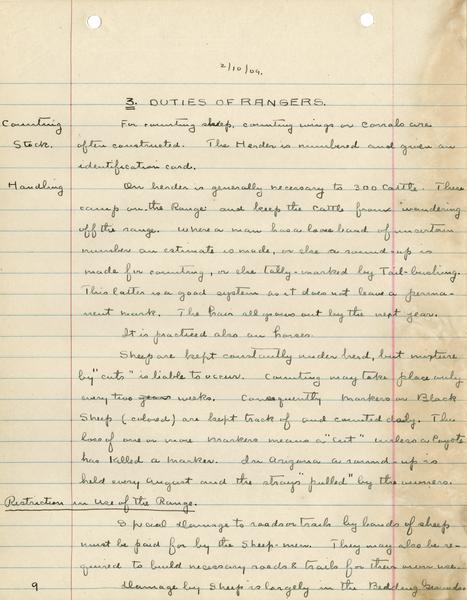 2/10/09.
3. DUTIES OF RANGERS.
Counting Stock.
For counting sheep, counting wings or corrals are
often constructed. The Herder is numbered and given an
identification card.
Handling
On herder is generally necessary to 300 Cattle. These
camp on the Range and keep the Cattle from wandering
off the range. Where a man has a loose band of uncertain
number an estimate is made, or else a round-up is
made for counting, or else tally-marked by Tail-bushing.
This latter is a good system as it does not leave a perma-
nent mark. The hair all grows out by the next year.
It is practiced also on horses.
Sheep are kept constantly under herd, but mixture
by "cuts" is liable to occur. Counting may take place only
every two years weeks. Consequently Markers or Black
Sheep (colored) are kept track of and counted daily. The
loss of one or more Markers means a "cut" unless a Coyote
has killed a marker. In Arizona a round-up is
held every August and the strays "pulled" by the owners.
Restriction in Use of the Range.
Special Damage to roads or trails by bands of sheep
must be paid for by the Sheep-men. They may also be re-
quired to build necessary roads & trails for their own use.
Damage by Sheep is largely in the Bedding Grounds
9